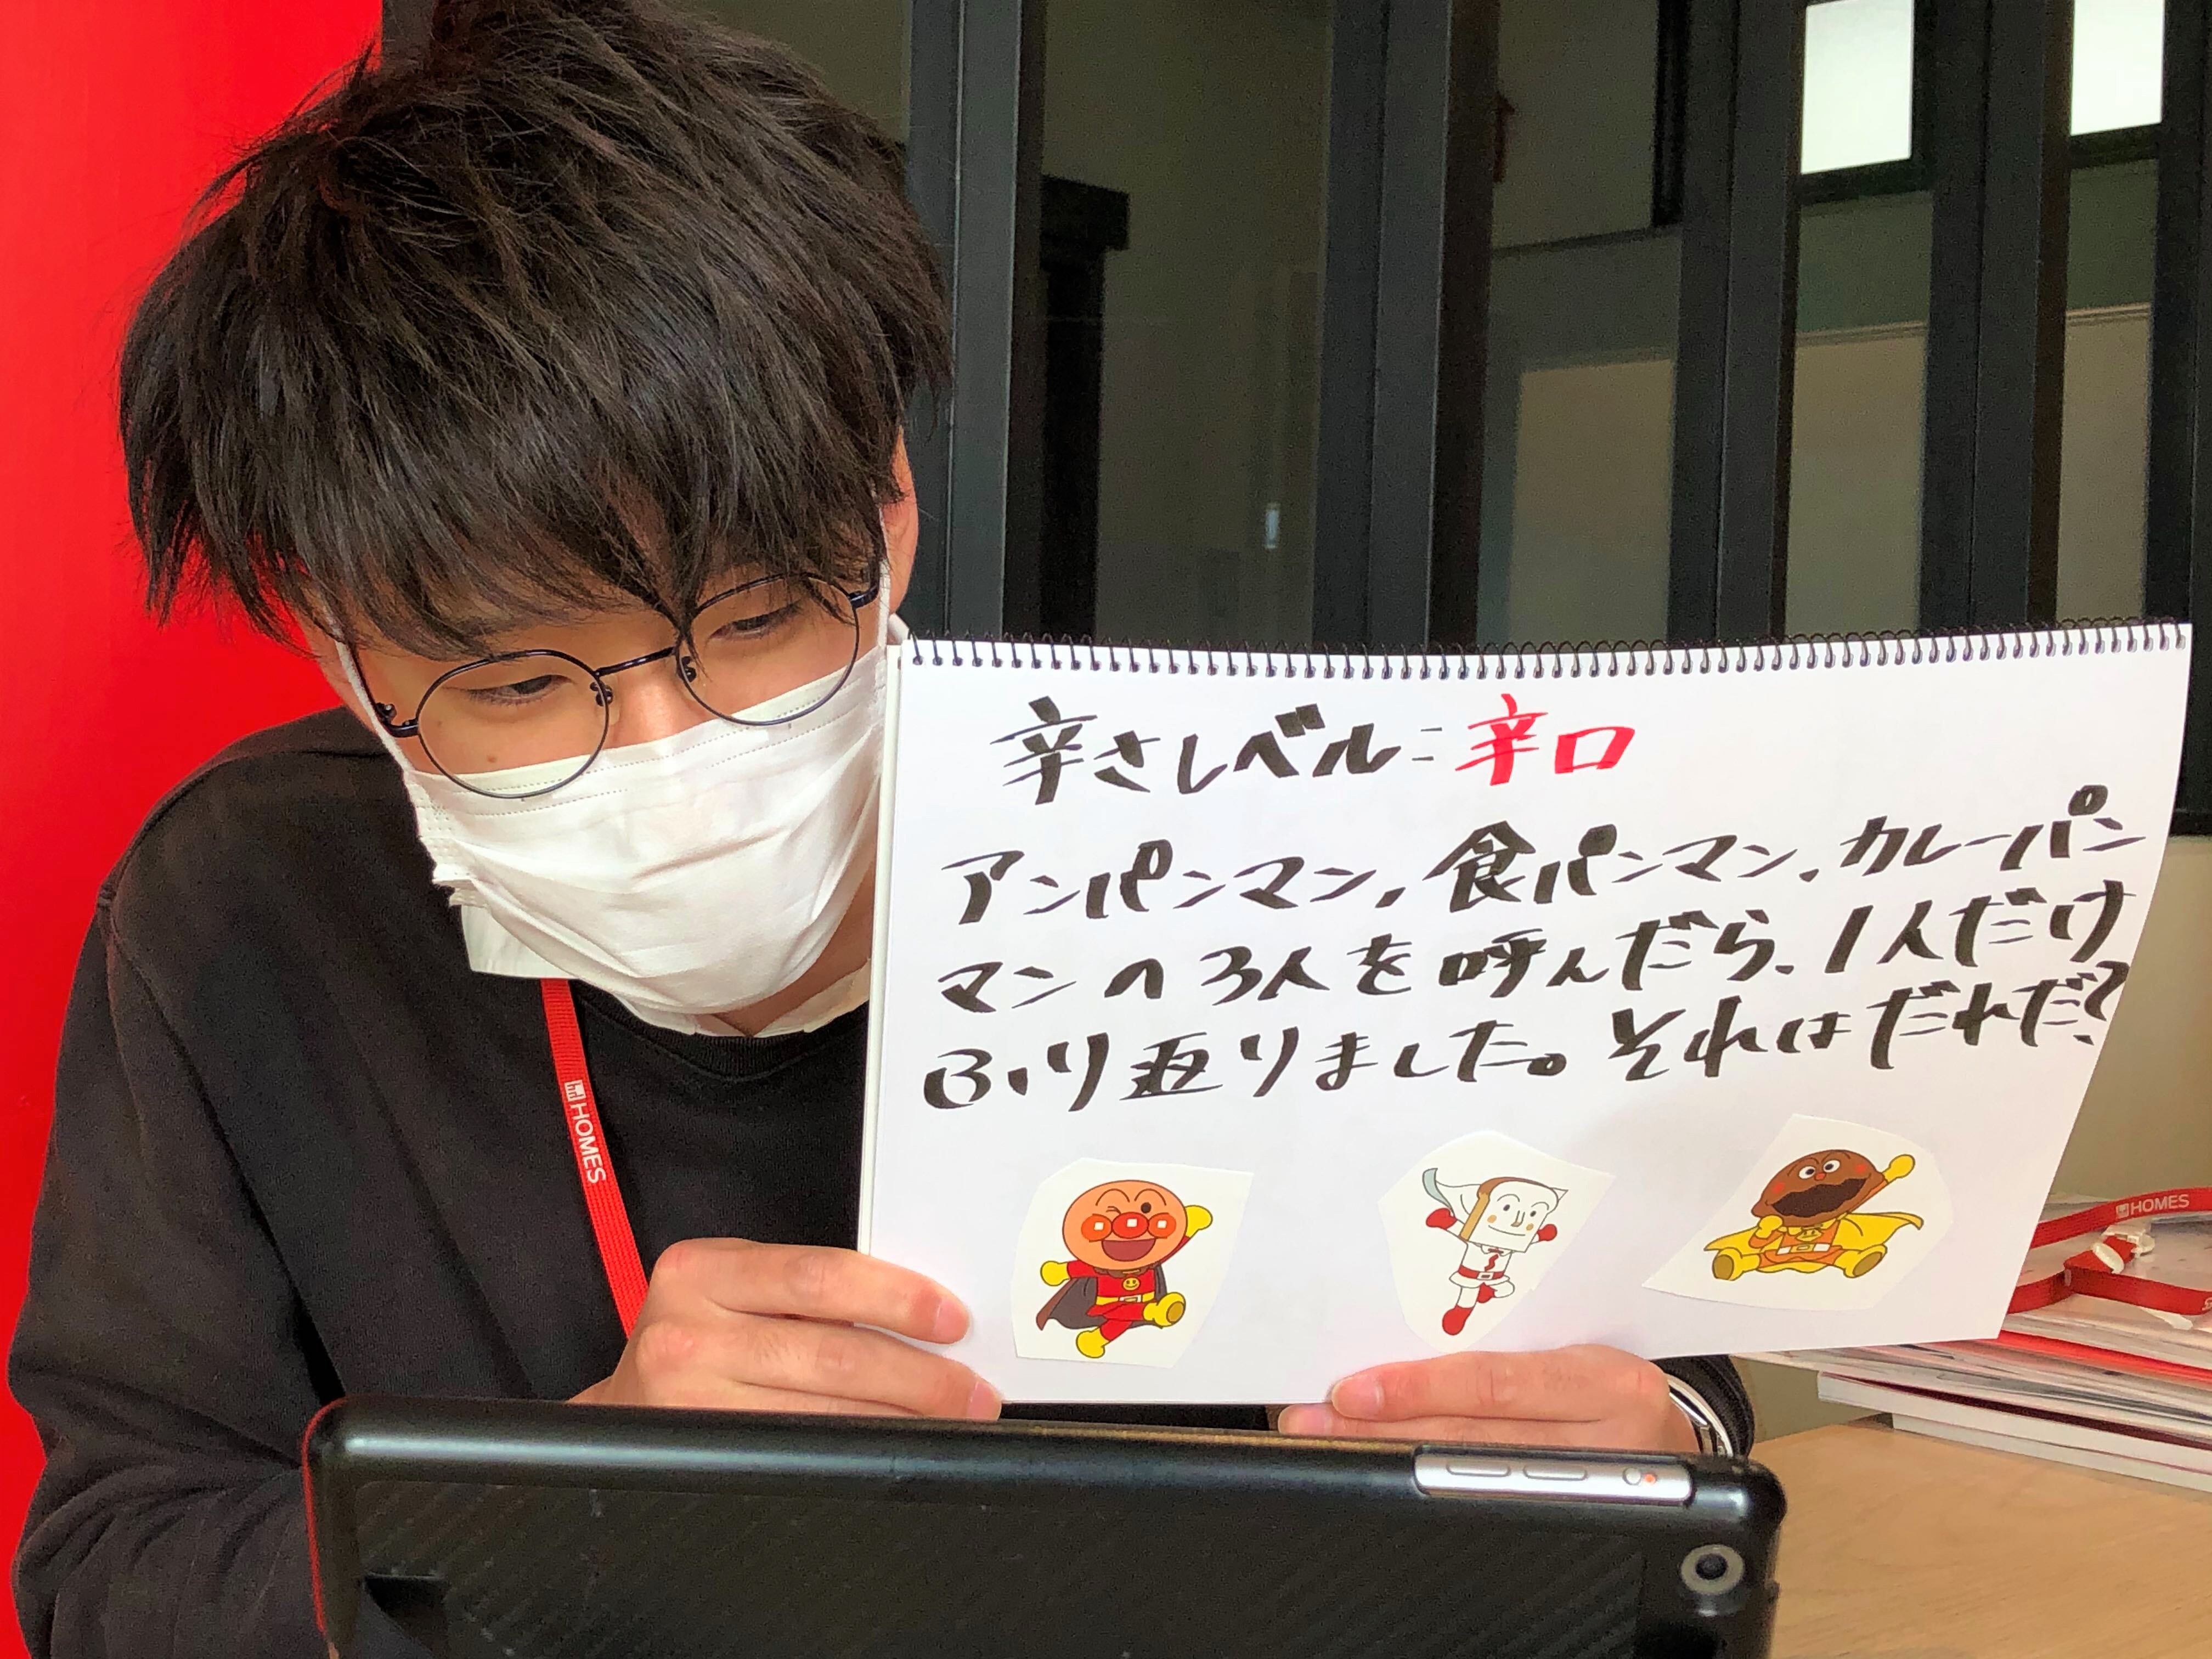 辛さレベル：辛口
アンパンマン、食パンマン、カレーパン
マンの3人を呼んだら、1人だけ
ふり返りました。それはだれだ？
HOMES
HOMES